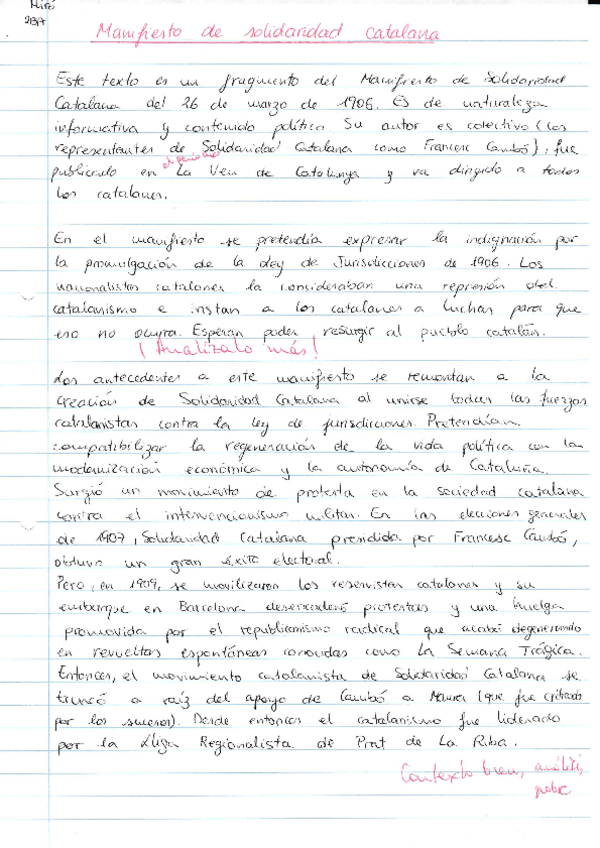 Miró
2BA
Manifiesto de solidaridad catalana
Este texto es un fragmento del Manifiesto de Solidaridad
Catalana del 26 de marzo de 1906. Es de naturaleza
informativa y contenido político. Su autor es colectivo (los
representantes de Solidaridad Catalana como Francesc Cambó), fue
el periódico
publicado en La Veu de Catalunya y va dirigido a todos
los catalanes.
En el manifiesto se pretendía expresar la indignación por
la promulgación de la Ley de Jurisdicciones de 1906. Los
nacionalistas catalanes la consideraban una represión del
catalanismo e instan a los catalanes a luchar para que
eso no ocurra. Esperan poder resurgir al pueblo catalán.
¡Analízalo más!
Los antecedentes a este manifiesto se remontan a la
creación de Solidaridad Catalana al unirse todas las fuerzas
catalanistas contra la ley de jurisdicciones. Pretendían
compatibilizar la regeneración de la vida política con la
modernización económica y la autonomía de Cataluña.
Surgió un movimiento de protesta en la sociedad catalana
contra el intervencionismo militar. En las elecciones generales
de 1907, Solidaridad Catalana presidida por Francesc Cambó,
obtuvo un gran éxito electoral.
Pero, en 1909, se movilizaron los reservistas catalanes y su
embarque en Barcelona desencadenó protestas y una huelga
promovida por el republicanismo radical que acabó degenerando
en revueltas espontáneas conocidas como La Semana Trágica.
Entonces, el movimiento catalanista de Solidaridad Catalana se
truncó a raíz del apoyo de Cambó a Maura (que fue criticado
por los sucesos). Desde entonces el catalanismo fue liderado
por la Lliga Regionalista de Prat de La Riba.
Contexto bien, análisis,
pobre